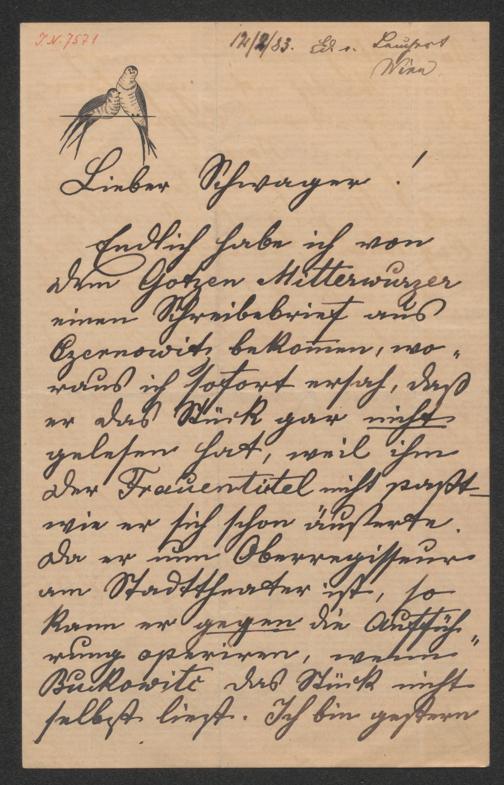 I.N. 7571
12/2/83. Ed v.
Wien
Lieber Schwager!
Endlich habe ich von
dem Götzen Mitterwurzer
einen Schreibebrief aus
Czernowitz bekommen, wo„
raus ich sofort ersah, daß
er das Stück gar nicht
gelesen hat, weil ihm
der Frauentitel nicht paßt
wie er sich schon äußerte.
Da er nun Oberregisseur
am Stadttheater ist, so
kann er gegen die Auffüh„
rung operiren, wenn
Buckowitc das Stück nicht
selbst liest. Ich bin gestern